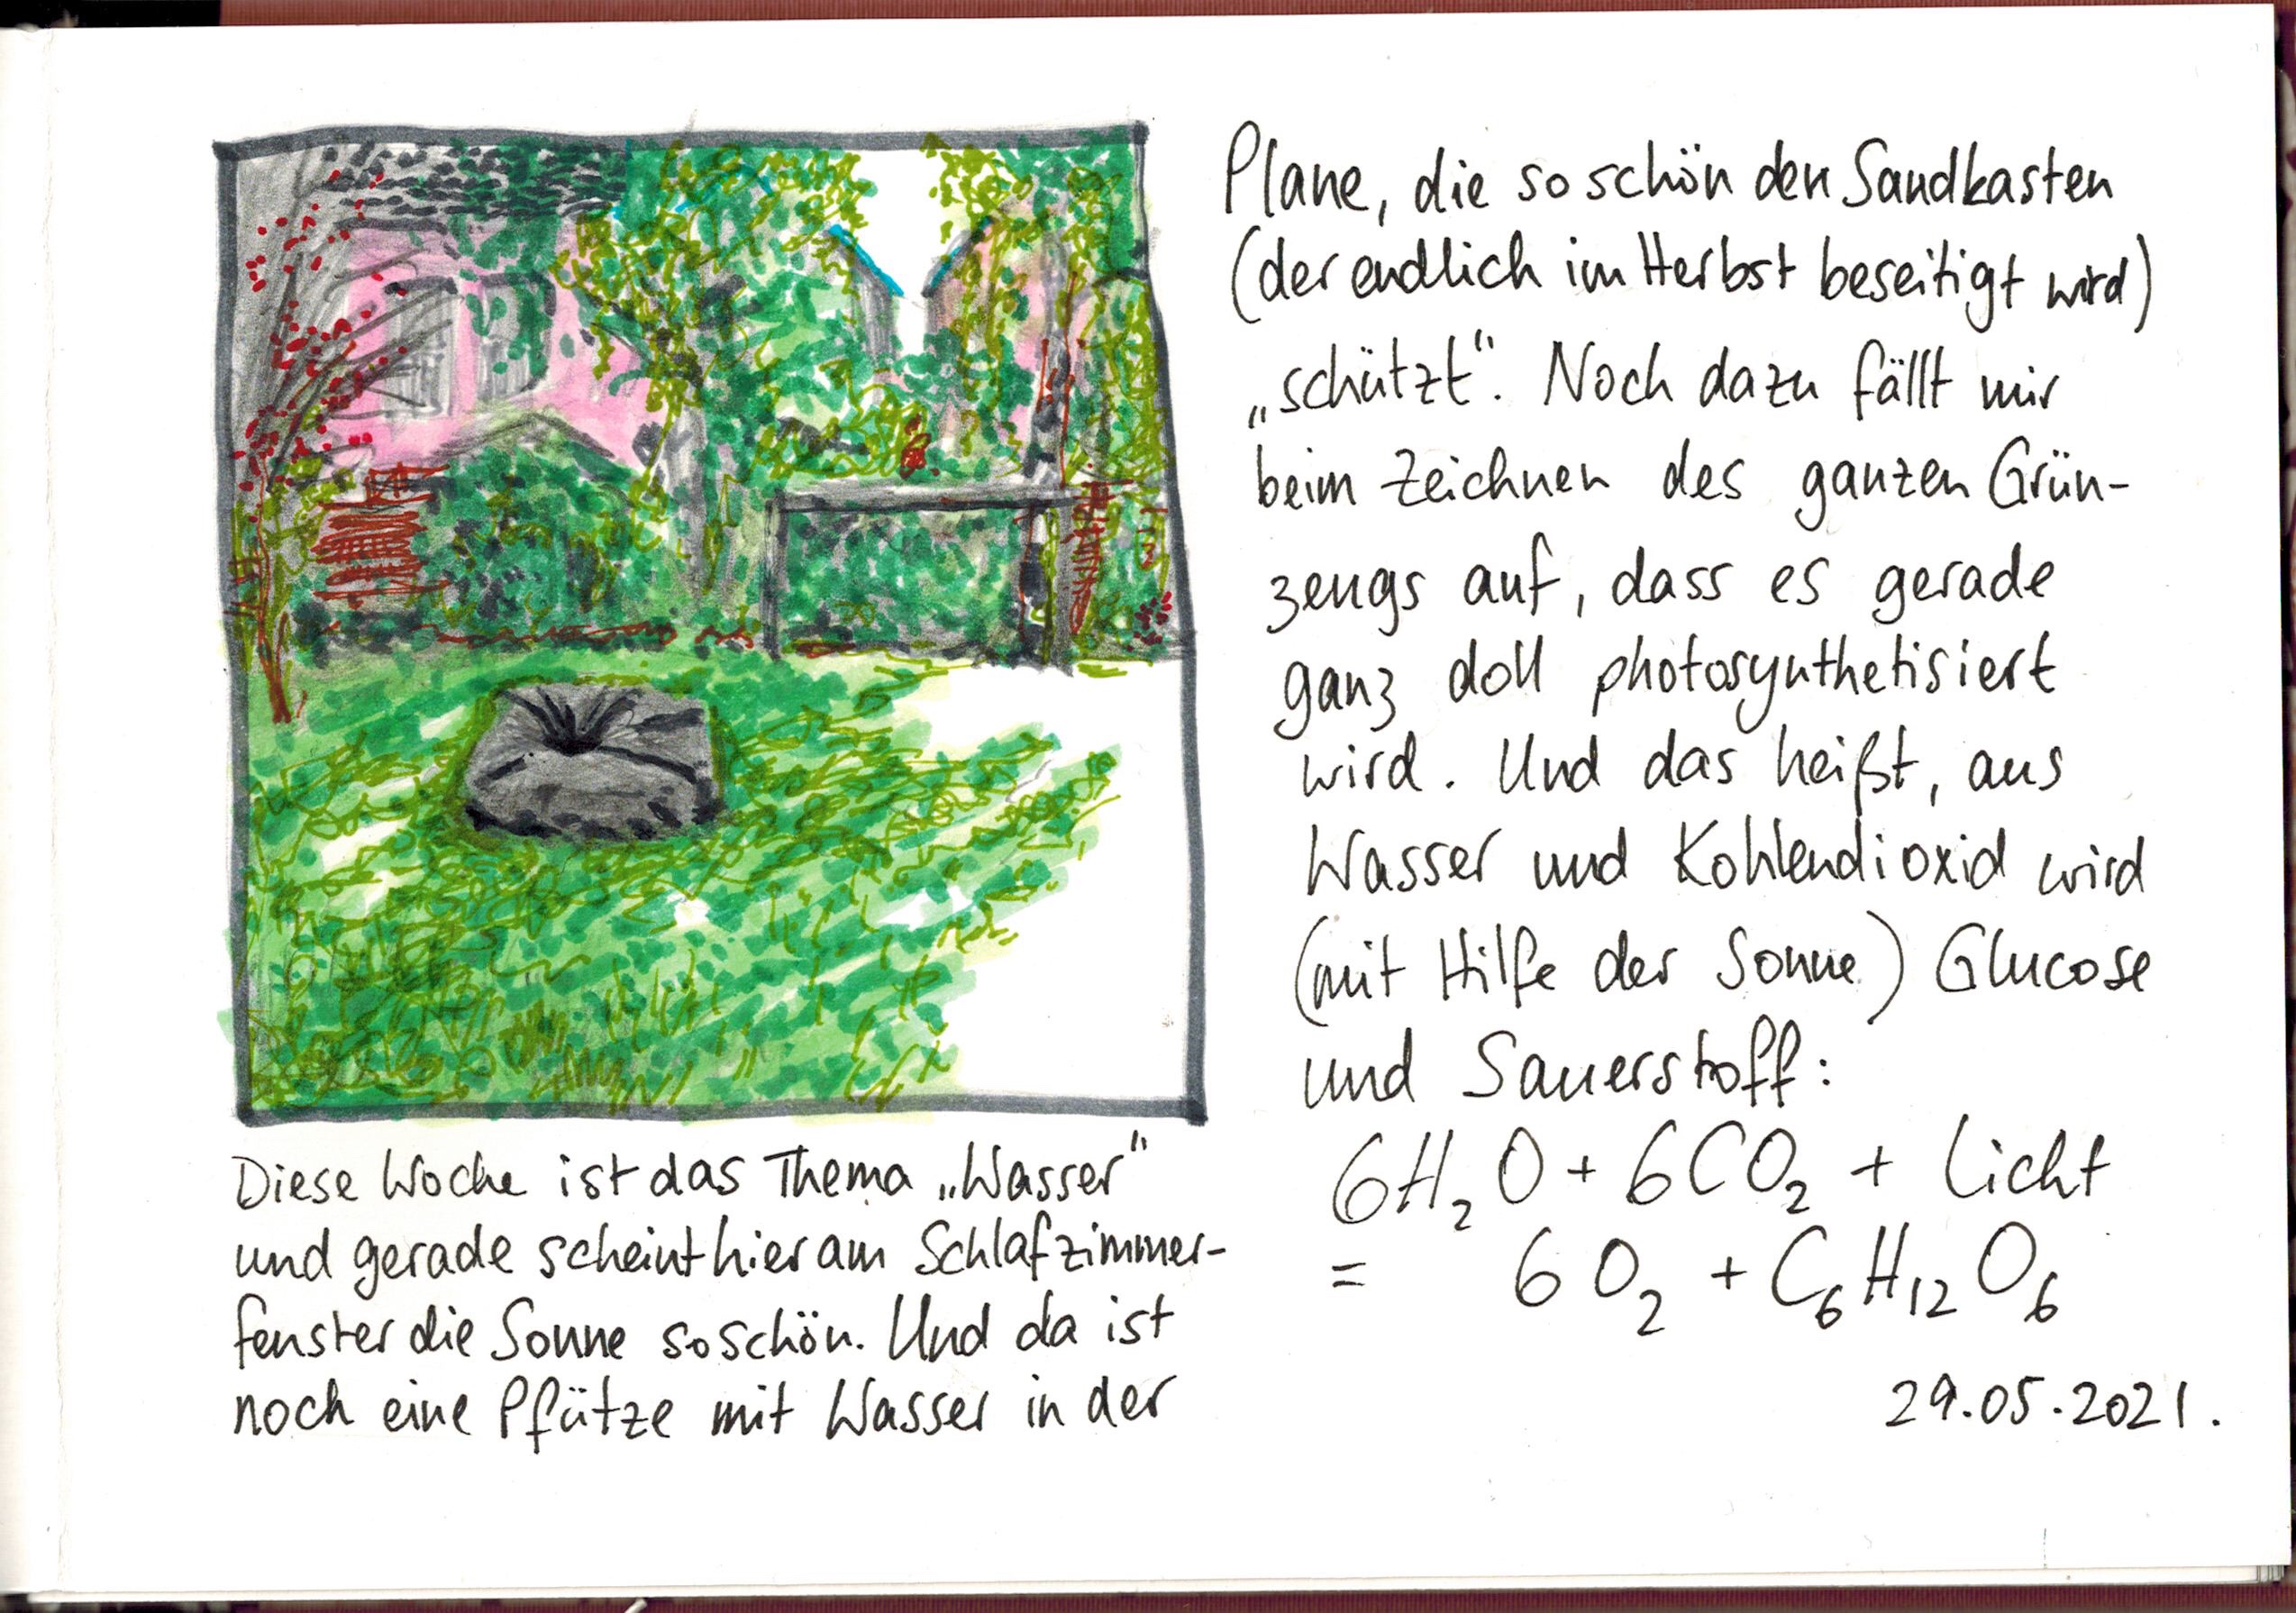 Diese Woche ist das Thema „Wasser“
und gerade scheint hier am Schlafzimmer-
fenster die Sonne so schön. Und da ist
noch eine Pfütze mit Wasser in der
Plane, die so schön den Sandkasten
(der endlich im Herbst beseitigt wird)
„schützt“. Noch dazu fällt mir
beim Zeichnen des ganzen Grün-
zeugs auf, dass es gerade
ganz doll photosynthetisiert
wird. Und das heißt, aus
Wasser und Kohlendioxid wird
(mit Hilfe der Sonne) Glucose
und Sauerstoff:
6H₂O + 6CO₂ + Licht
= 6O₂ + C₆H₁₂O₆
29.05.2021.